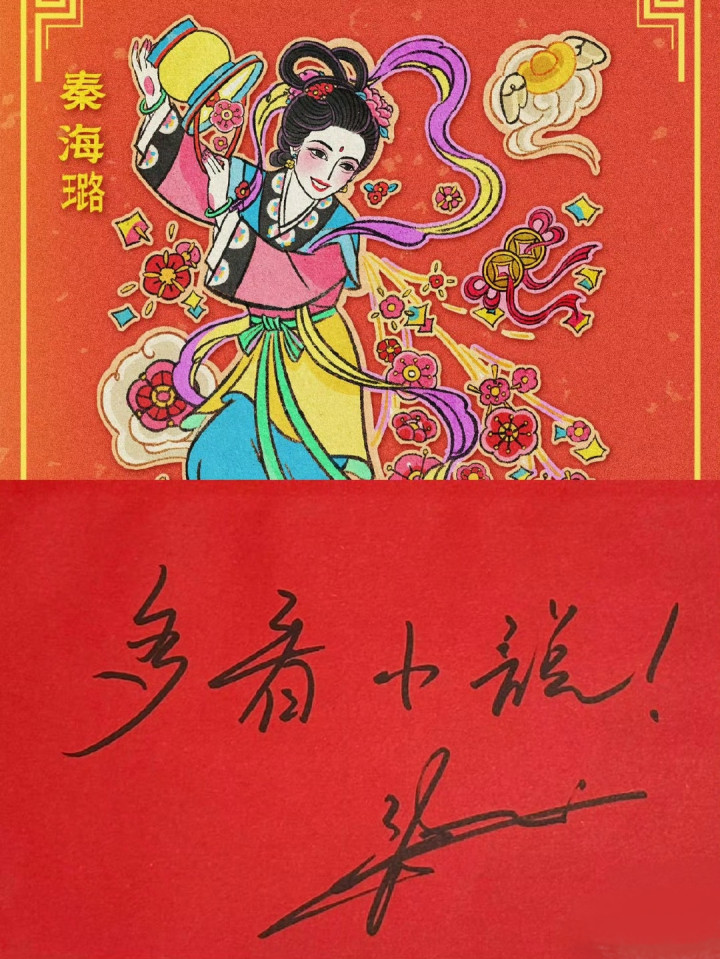 秦海璐
多看小説！